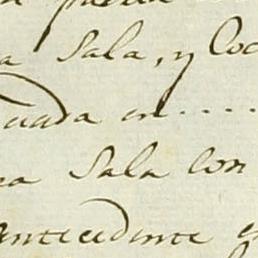 a Sala, y Coc
uada en . . . .
na Sala con
antecedente e